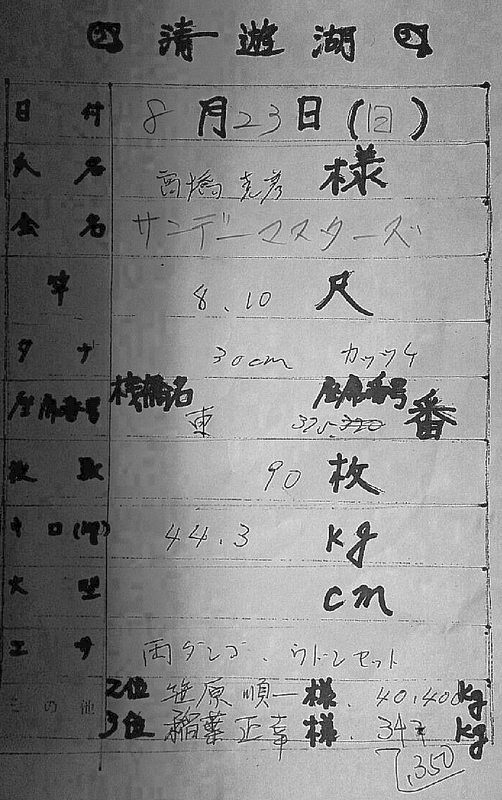 清遊湖
日付 8月23日(日)
氏名 高橋克彦 様
会名 サンデーマスターズ
竿 8.10 尺
タナ 30cm カッツケ
座席番号 桟橋名 東 座席番号 番
枚数 90 枚
キロ(kg) 44.3 kg
大型 cm
エサ 両ダンゴ、ウドンセット
その他 2位 笹原順一様. 40.400kg
3位 稲葉正幸様. 34 kg
.350